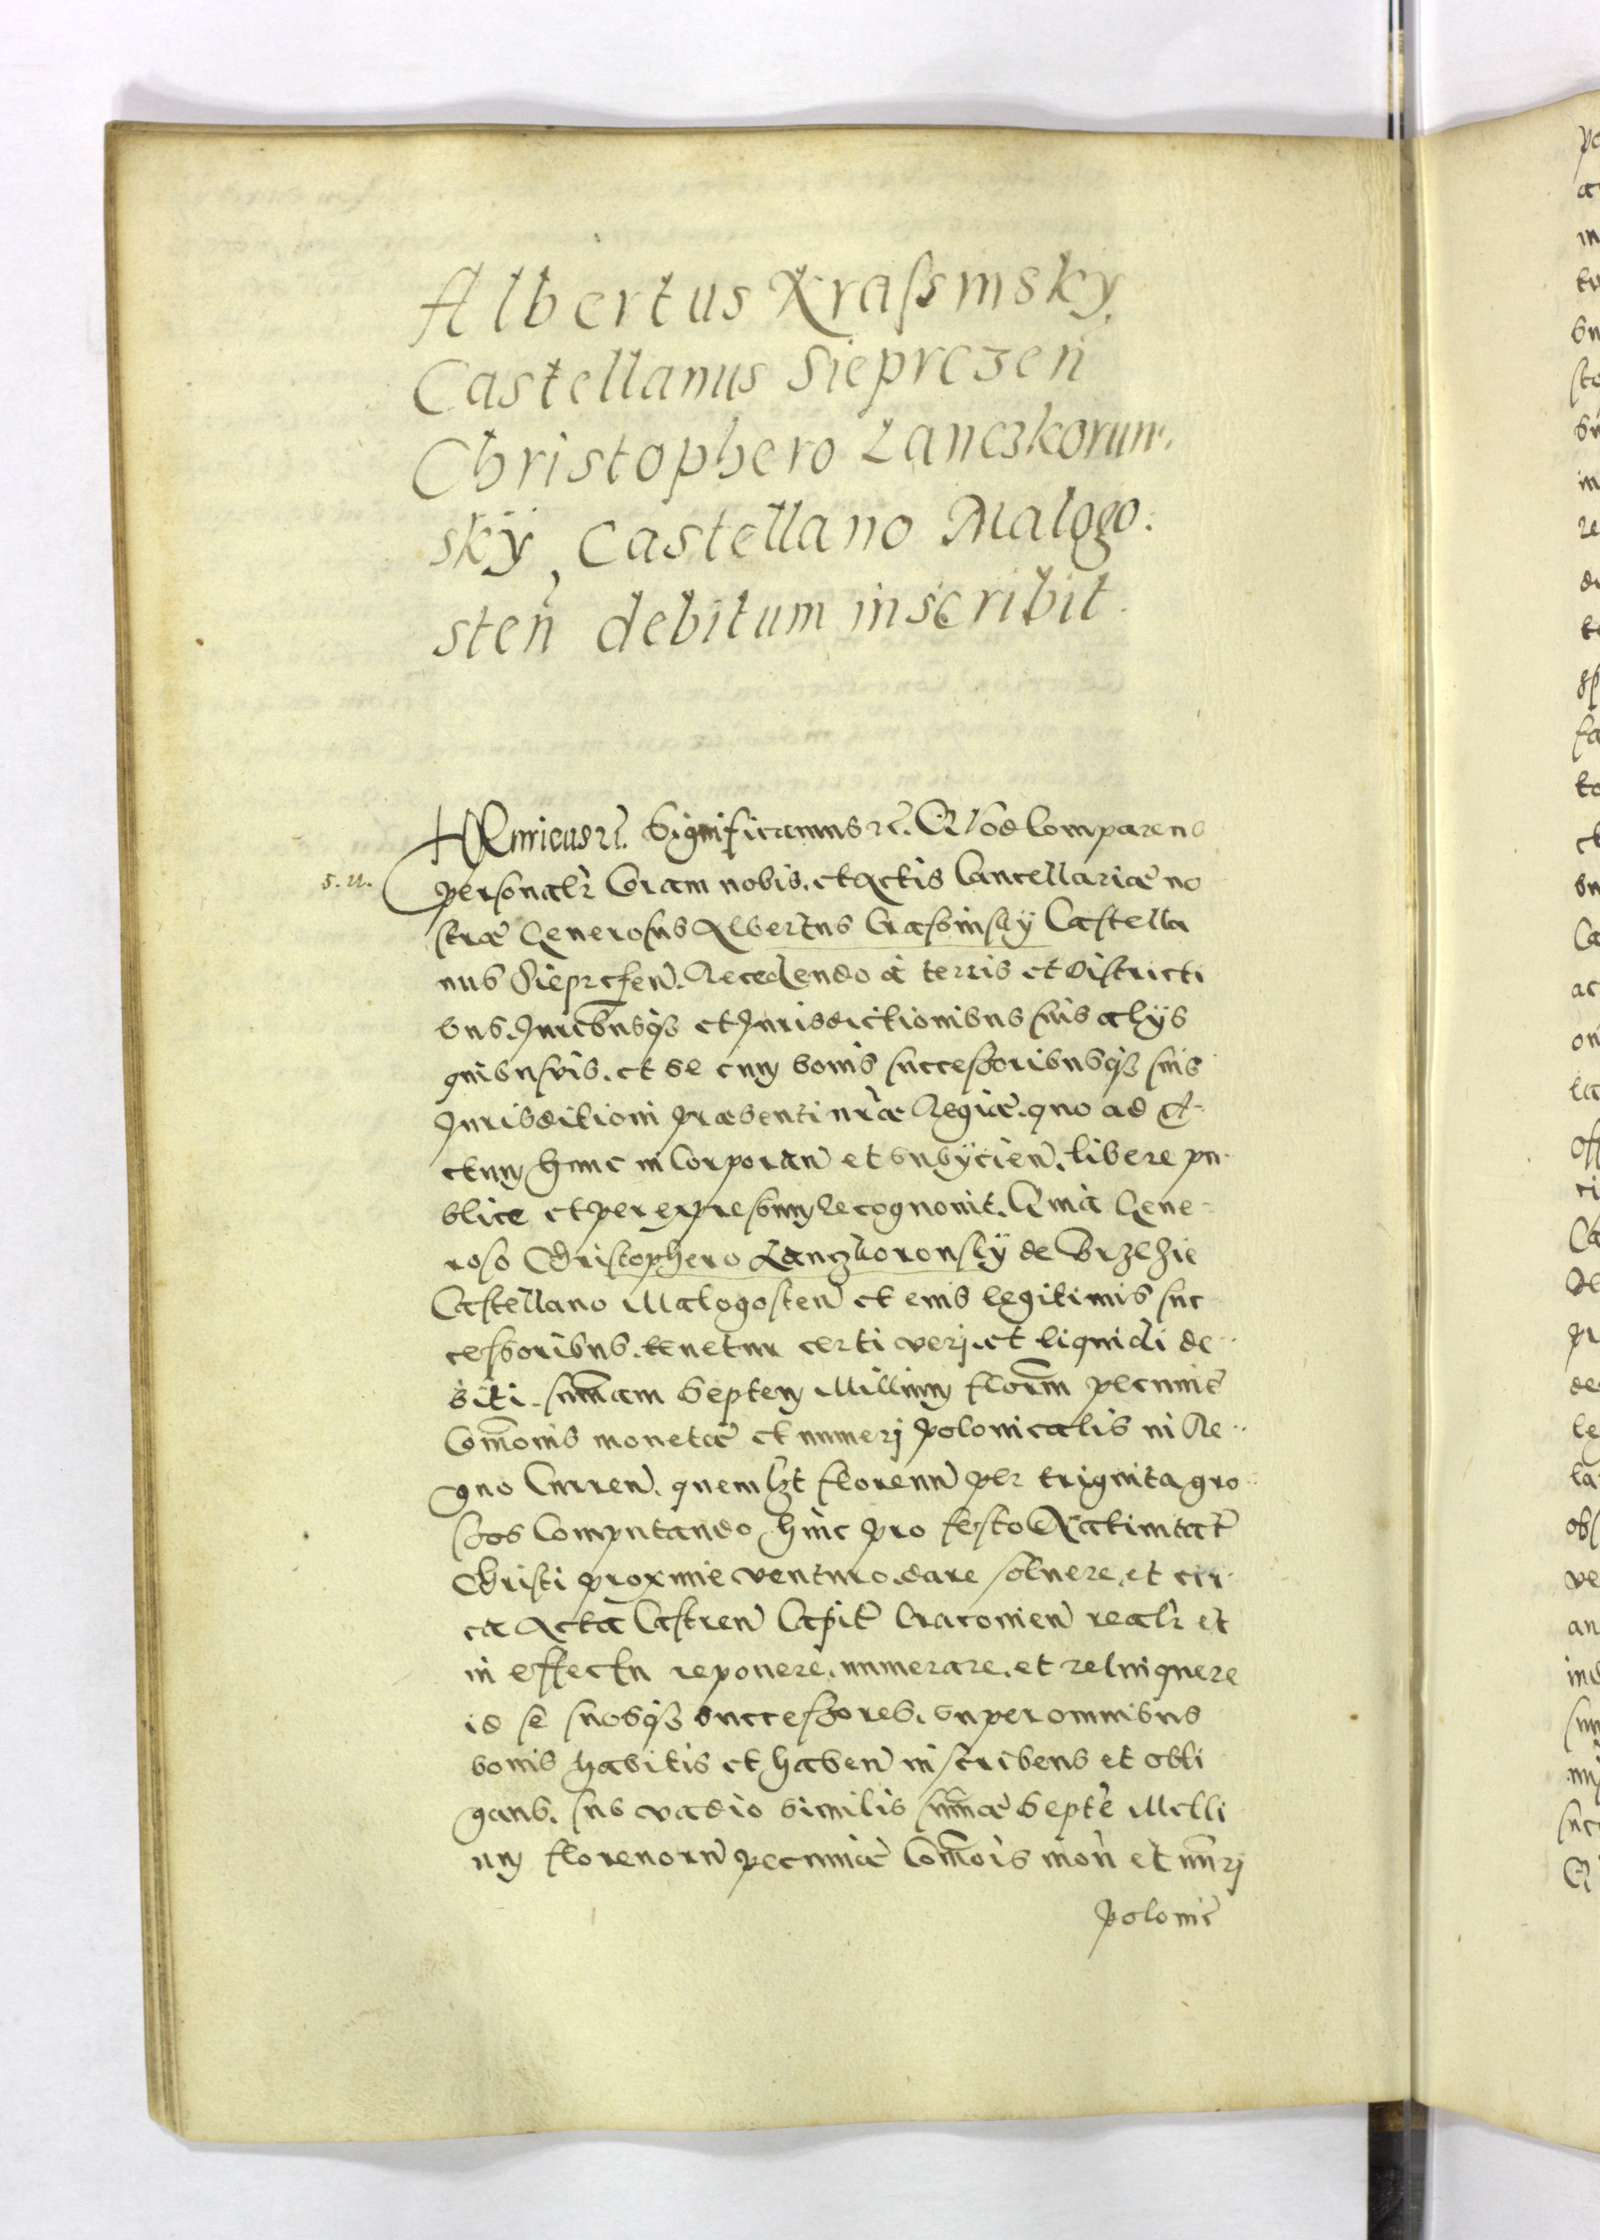 Albertus Krassinsky
Castellanus Sieprczen
Christophero Lanczkorun.
sky Castellano Malogo.
sten debitum inscribit.
HEnricus rc. Significamus rc. Quod Comparens
s. u.
personalr Coram nobis, et Actis Cancellariae no
strae Generosus Albertus Crassinsky Castella
nus Sieprcsen. Recedendo à terris et Districti
bus, Juribusqz et Jurisdictionibus suis alijs
quibusvis, et se cum bonis successoribusqz suis
Jurisditioni praesenti nrae Regiae, quo ad A-
ctum hunc in Corporan et subÿcien, libere pu-
blice et per expressum recognovit. Quia Gene-
roso Christophero Lanczkoronsky de Brzezie
Castellano Malogosten et eius legitimis suc
cessoribus, tenetur certi veri, et liquidi de-
biti summam Septem Millium florenm pecunie
Comonis monetae et numeri polonicalis in Re-
gno Curren, quemlzt florenu per triginta gro
ssos Computando, hinc pro festo Nativitat
Christi proxime venturo, dare solvere, et cir-
ca Acta Castren Capit Cracovien realr et
in effectu reponere, numerare, et relinquere
id se suosqz successores, super omnibus
bonis habitis et haben inscribens et obli
gans, sub vadio similis summae Septe Milli
um florenoru pecuniae Comois mon et numri
polonic